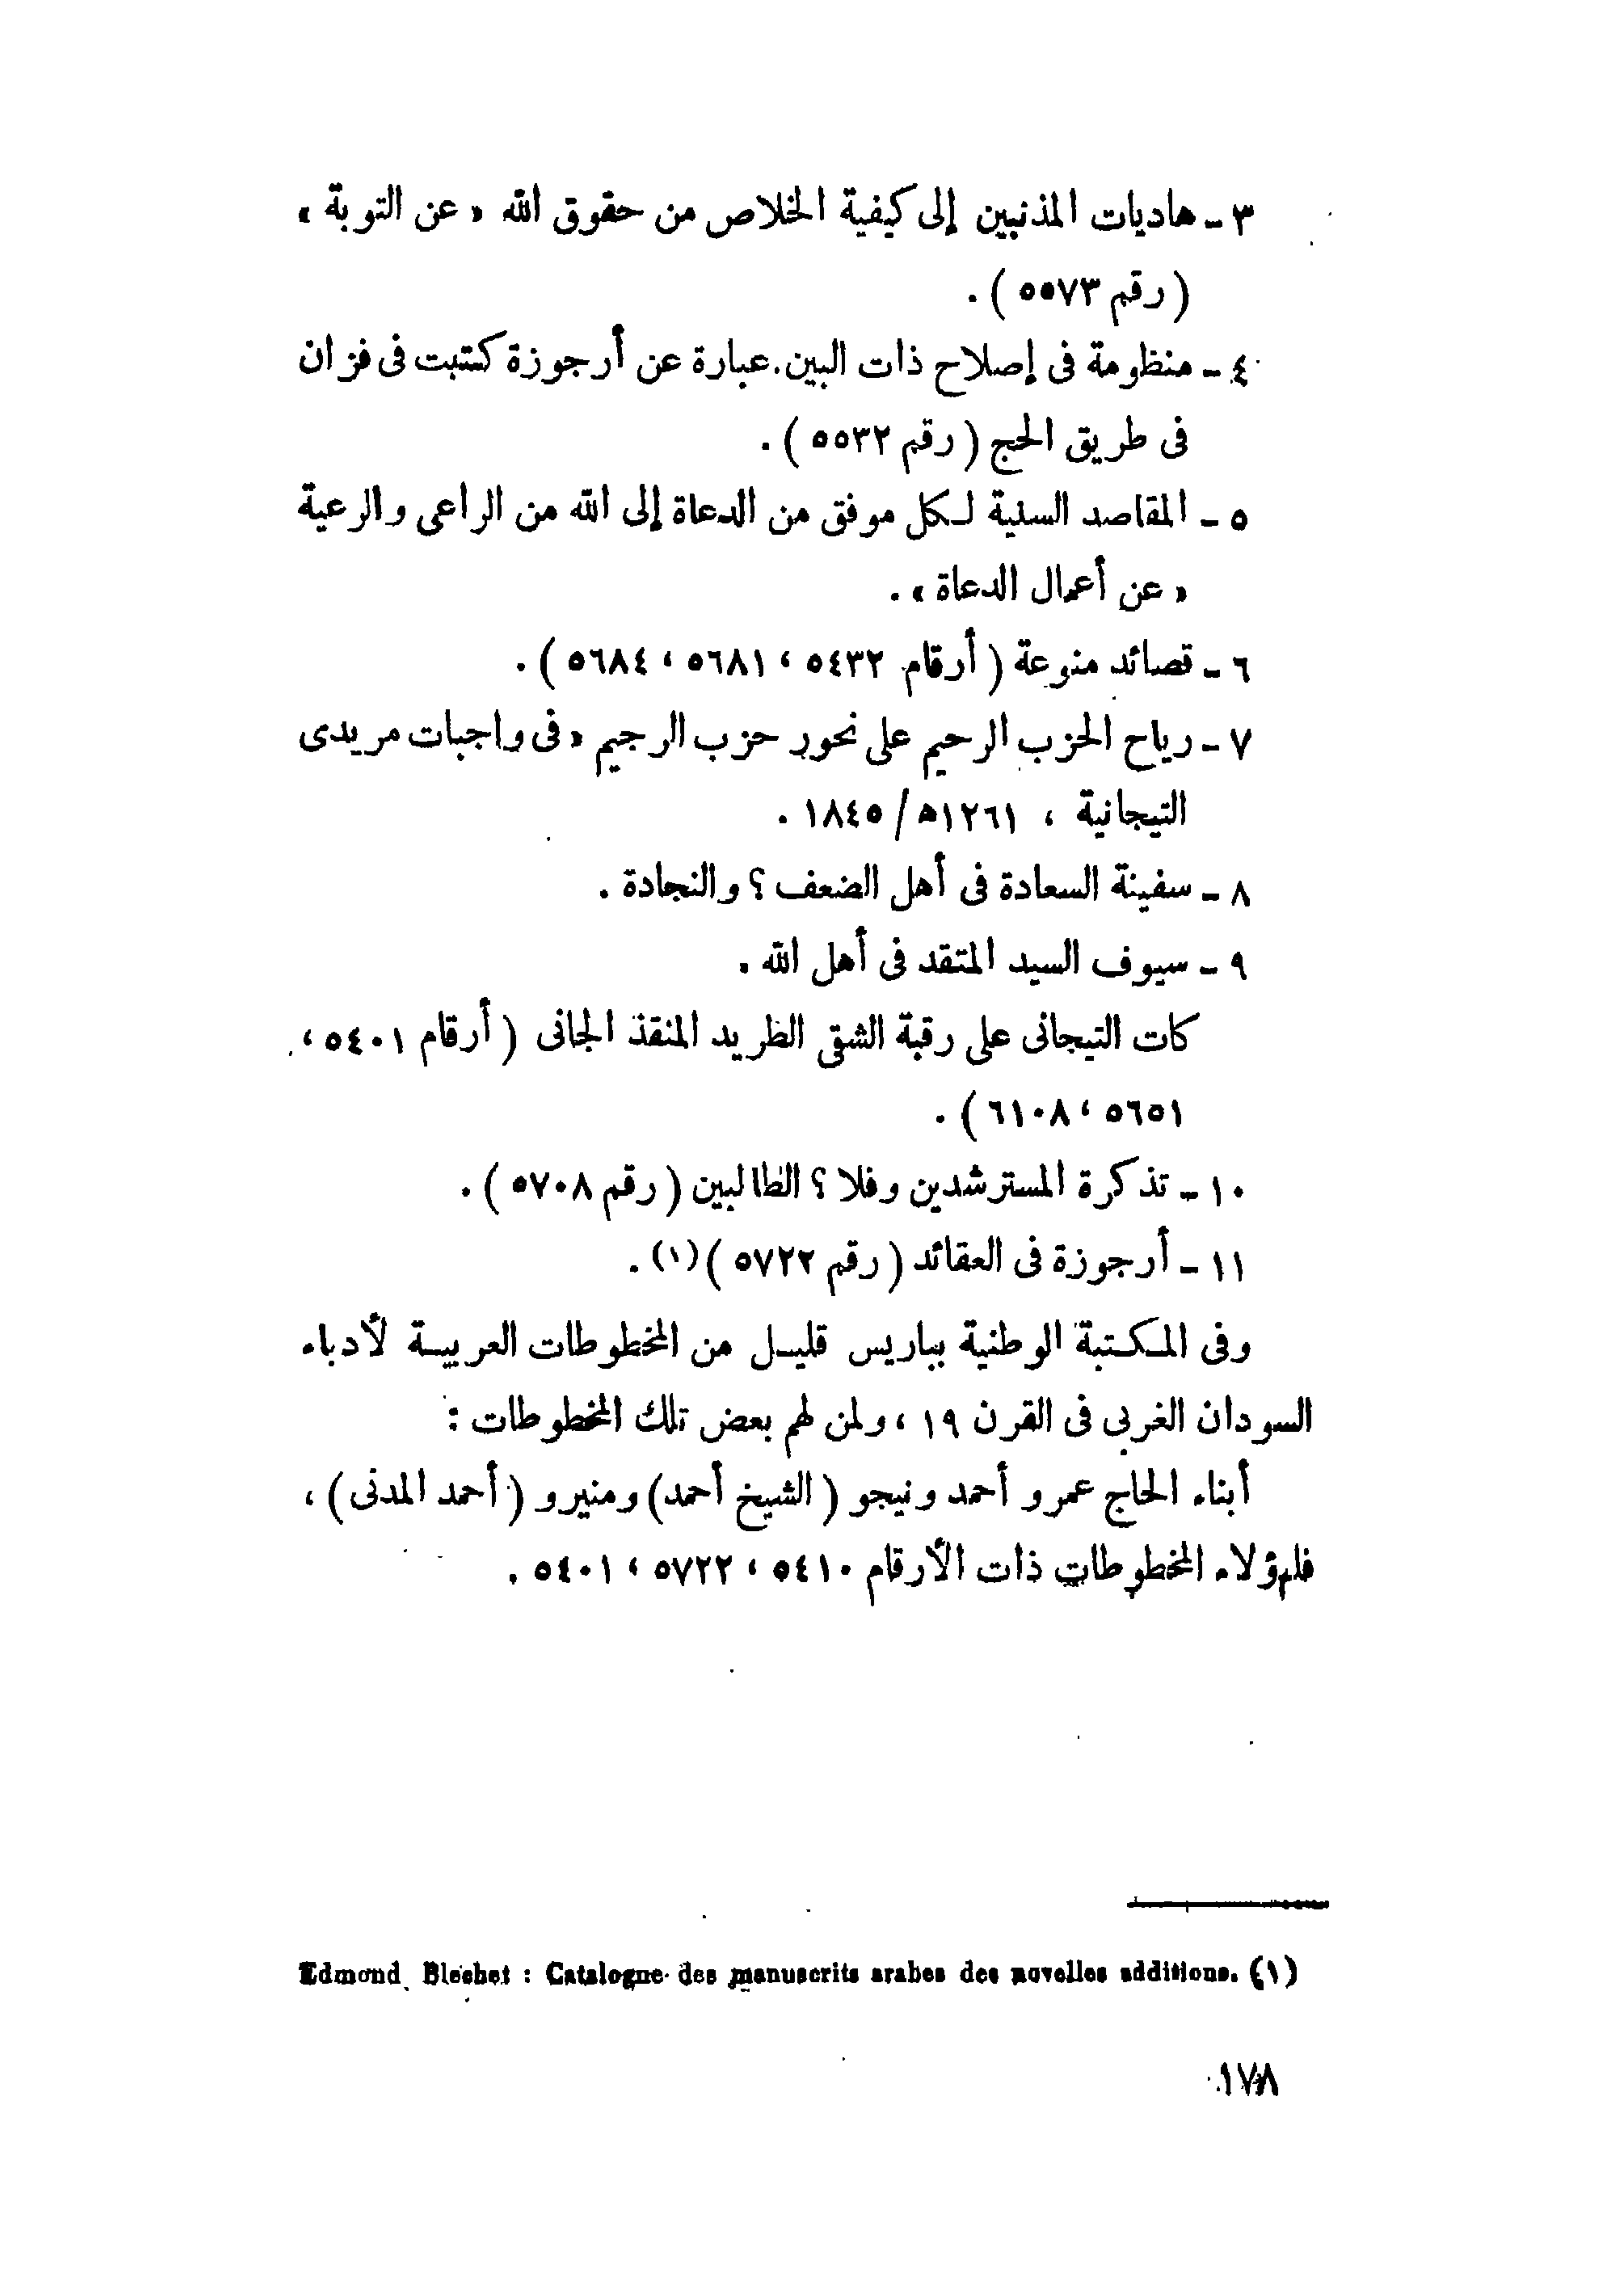 ٣ - هاديات المذنبين إلى كيفية الخلاص من حقوق الله « عن التوبة »
( رقم ٥٥٧٣ ) .
٤ - منظومة فى إصلاح ذات البين . عبارة عن أرجوزة كتبت فى فزان
فى طريق الحج ( رقم ٥٥٣٢ ) .
٥ - المقاصد السنية لكل موفق من الدعاة إلى الله من الراعى والرعية
« عن أعمال الدعاة » .
٦ - قصائد منوعة ( أرقام ٥٤٣٢ ، ٥٦٨١ ، ٥٦٨٤ ) .
٧ - رياح الحزب الرحيم على نحور حزب الرجيم « فى واجبات مريدى
التيجانية ، ١٢٦١ه / ١٨٤٥ .
٨ - سفينة السعادة فى أهل الضعف ؟ والنجادة .
٩ - سيوف السيد المتقد فى أهل الله .
كات التيجانى على رقبة الشقى الطريد المنقذ الجانى ( أرقام ٥٤٠١ ،
٥٦٥١ ، ٦١٠٨ ) .
١٠ - تذكرة المسترشدين وفلا ؟ الطالبين ( رقم ٥٧٠٨ ) .
١١ - أرجوزة فى العقائد ( رقم ٥٧٢٢ ) (١) .
وفى المكتبة الوطنية بباريس قليل من المخطوطات العربية لأدباء
السودان الغربى فى القرن ١٩ ، ولمن لهم بعض تلك المخطوطات :
أبناء الحاج عمرو أحمد ونيجو ( الشيخ أحمد ) ومنيرو ( أحمد المدنى ) ،
فلهؤلاء المخطوطات ذات الأرقام ٥٤١٠ ، ٥٧٢٢ ، ٥٤٠١ .
(١) Edmond Blechet : Catalogne des manuscrits arabes des novelles additions.
١٧٨